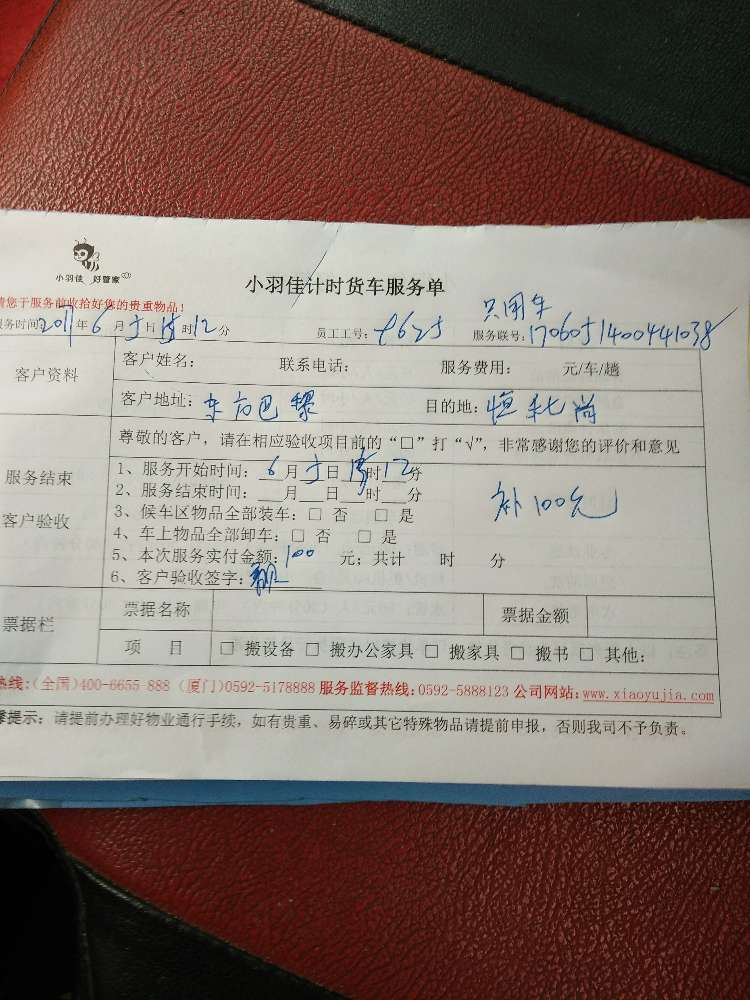 小羽佳 好管家
小羽佳计时货车服务单
请您于服务前收拾好您的贵重物品！
只用车
服务时间2017年6月5日15时12分 员工工号：9625 服务联号：1706051400441038
客户资料
客户姓名： 联系电话： 服务费用： 元/车/趟
客户地址：东方巴黎 目的地：
尊敬的客户，请在相应验收项目前的“□”打“√”，非常感谢您的评价和意见
服务结束
客户验收
1、服务开始时间：6月5日15时12分
2、服务结束时间：___月___日___时___分
3、候车区物品全部装车：□ 否 □ 是
4、车上物品全部卸车：□ 否 □ 是
5、本次服务实付金额：100 元；共计 时 分
6、客户验收签字：
补100元
票据栏
票据名称 票据金额
项 目 □ 搬设备 □ 搬办公家具 □ 搬家具 □ 搬书 □ 其他：
热线：(全国)400-6655 888 (厦门)0592-5178888 服务监督热线：0592-5888123 公司网站：www.xiaoyujia.com
馨提示：请提前办理好物业通行手续，如有贵重、易碎或其它特殊物品请提前申报，否则我司不予负责。